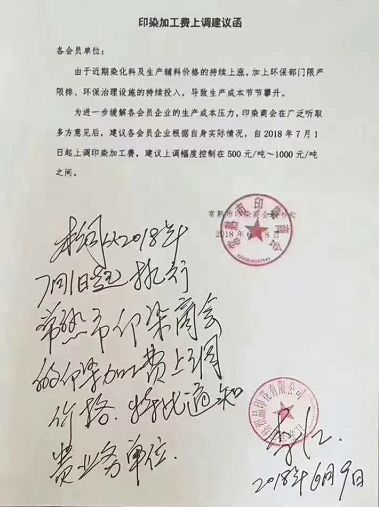 印染加工费上调建议函
各会员单位：
由于近期染化料及生产辅料价格的持续上涨，加上环保部门限产
限排、环保治理设施的持续投入，导致生产成本节节攀升。
为进一步缓解各会员企业的生产成本压力，印染商会在广泛听取
多方意见后，建议各会员企业根据自身实际情况，自2018年7月1
日起上调印染加工费，建议上调幅度控制在500元/吨～1000元/吨
之间。
常熟市印染商会
2018年6月8日
常熟市印染商会
本司从2018年
7月1日起执行
常熟市印染商会
的印染加工费上调
价格.特此通知
贵业务单位.
印花有限公司
2018年6月9日